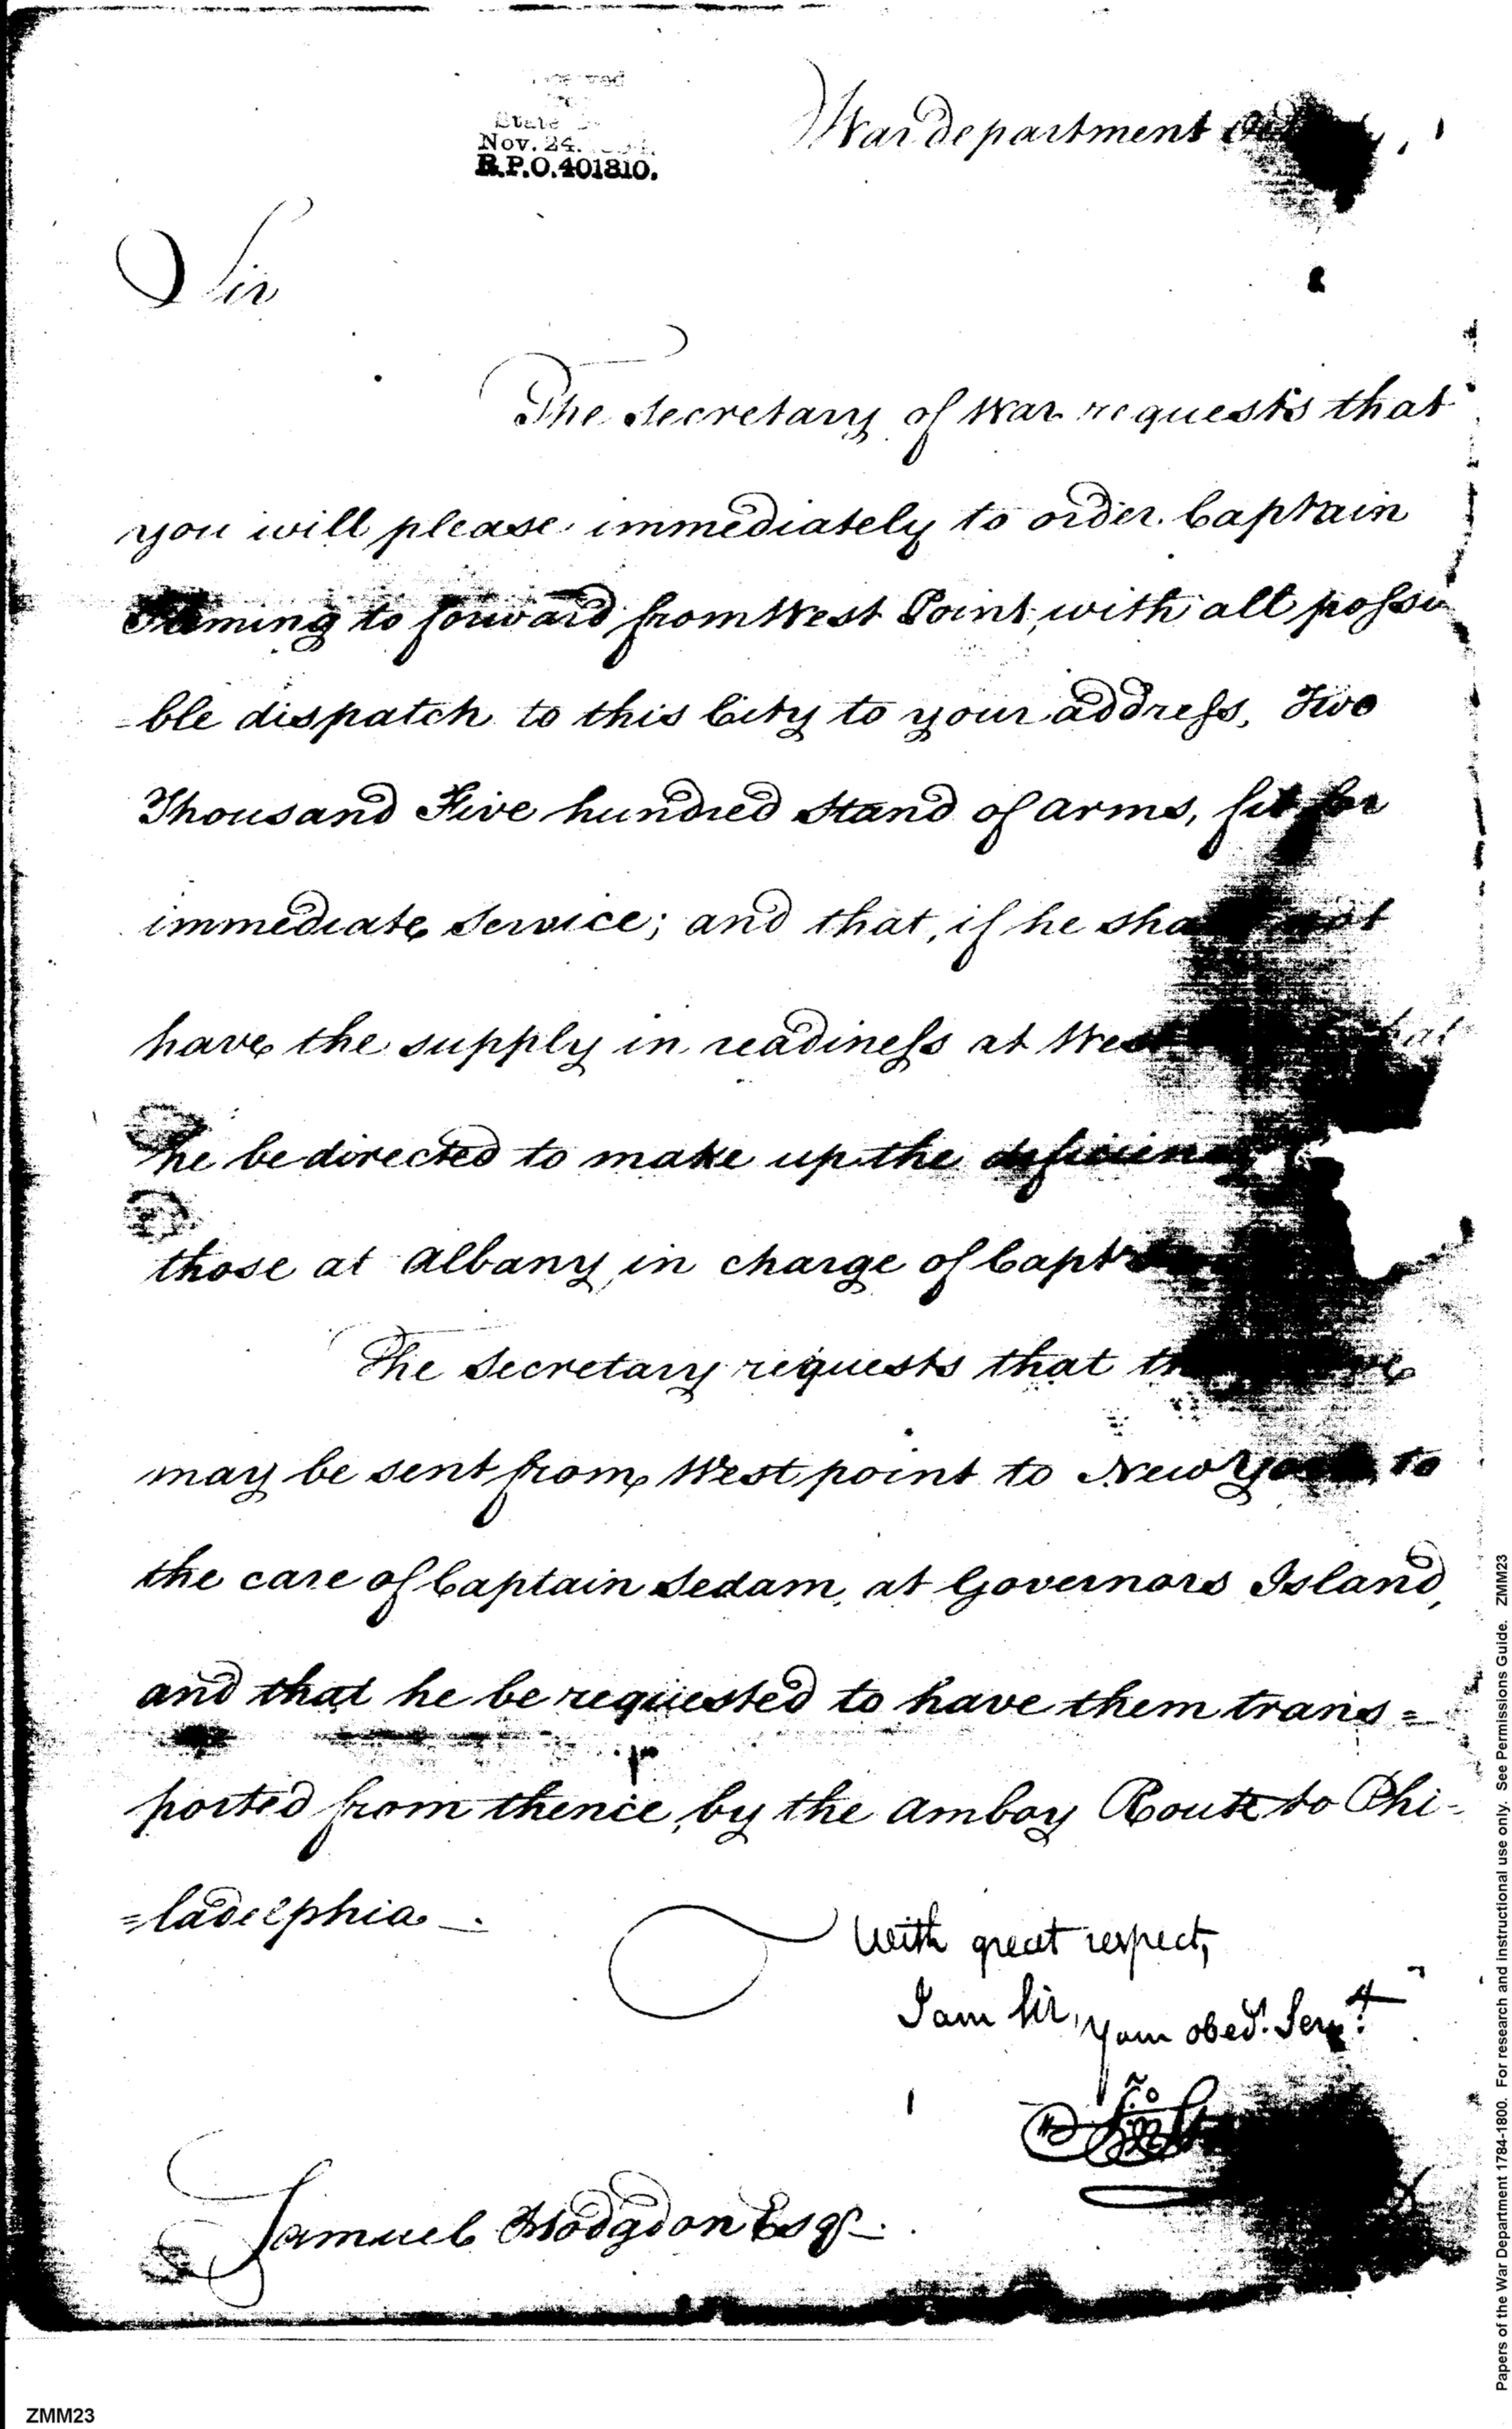 State
Nov. 24.
R.P.O. 401810.
War department
Sir
The Secretary of War requests that
you will please immediately to order Captain
Fleming to forward from West Point, with all possi
ble dispatch to this City to your address, Two
Thousand Five hundred Stand of arms, fit for
immediate Service; and that, if he shall not
have the supply in readiness at West that
he be directed to make up the
those at Albany in charge of Capt
The Secretary requests that
may be sent from West point to New York, to
the care of Captain Sedam, at Governors Island,
and that he be requested to have them trans=
ported from thence, by the Amboy Route to Phi-
=ladelphia.
With great respect,
I am Sir, your obed.t Serv.t
Samuel Hodgdon Esqr.
Papers of the War Department 1784-1800. For research and instructional use only. See Permissions Guide. ZMM23
ZMM23